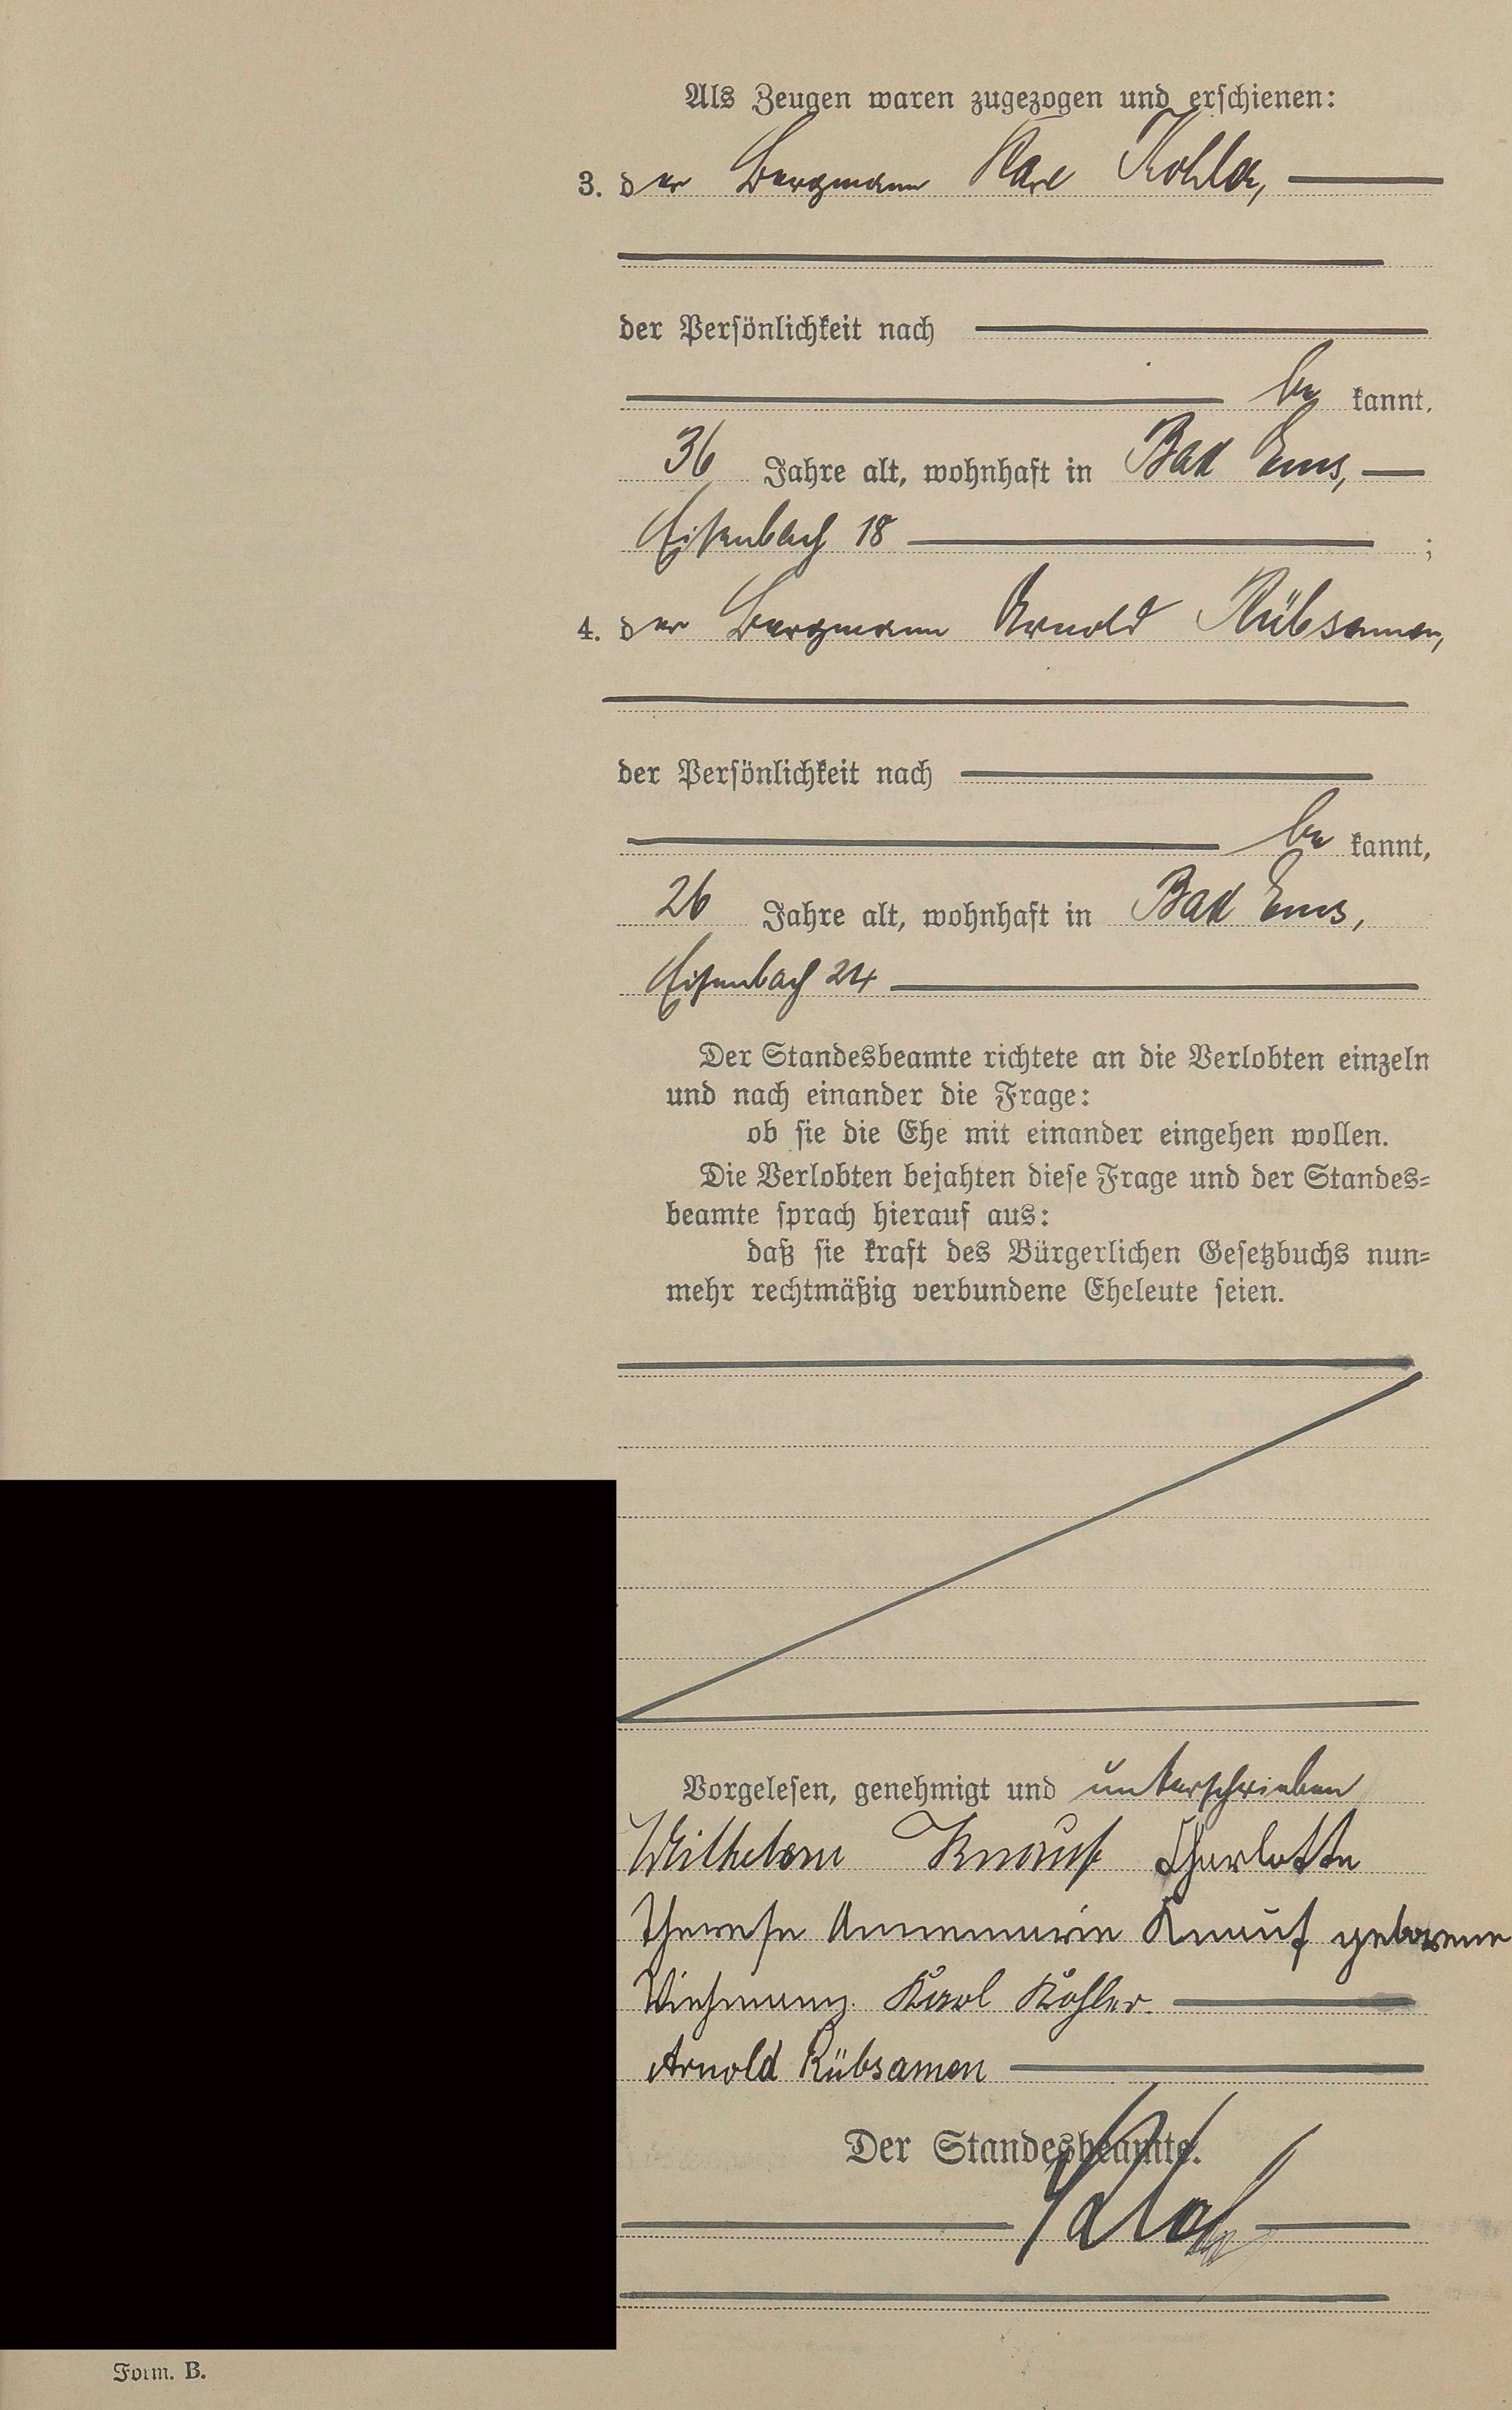 Als Zeugen waren zugezogen und erschienen:
3. der Bergmann Karl Kohler,
der Persönlichkeit nach
be kannt,
36 Jahre alt, wohnhaft in Bad Ems,
Eisenbach 18 ;
4. der Bergmann Arnold Rübsamen,
der Persönlichkeit nach
be kannt,
26 Jahre alt, wohnhaft in Bad Ems,
Eisenbach 24
Der Standesbeamte richtete an die Verlobten einzeln
und nach einander die Frage:
ob sie die Ehe mit einander eingehen wollen.
Die Verlobten bejahten diese Frage und der Standes=
beamte sprach hierauf aus:
daß sie kraft des Bürgerlichen Gesetzbuchs nun=
mehr rechtmäßig verbundene Eheleute seien.
Vorgelesen, genehmigt und unterschrieben
Wilhelm Knauf Charlotte
Therese Annemarie Knauf geborene
Karl Kohler.
Arnold Rübsamen
Der Standesbeamte.
Form. B.